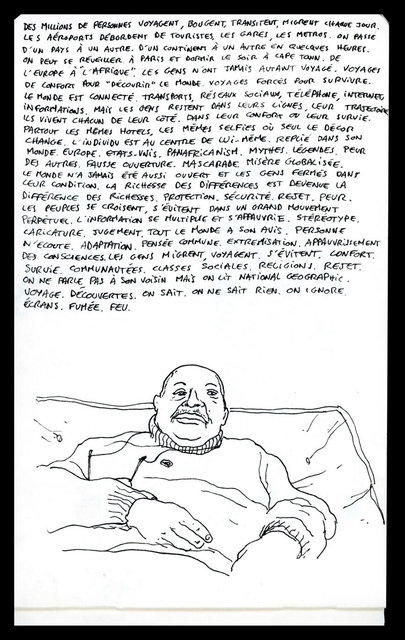 DES MILLIONS DE PERSONNES VOYAGENT, BOUGENT, TRANSITENT, MIGRENT CHAQUE JOUR.
LES AÉROPORTS DÉBORDENT DE TOURISTES, LES GARES, LES METROS. ON PASSE
D'UN PAYS À UN AUTRE. D'UN CONTINENT À UN AUTRE EN QUELQUES HEURES.
ON PEUT SE RÉVEILLER À PARIS ET DORMIR LE SOIR À CAPE TOWN. DE
L'EUROPE À "L'AFRIQUE". LES GENS N'ONT JAMAIS AUTANT VOYAGÉ. VOYAGES
DE CONFORT POUR "DÉCOUVRIR" LE MONDE. VOYAGES FORCÉS POUR SURVIVRE.
LE MONDE EST CONNECTÉ. TRANSPORTS, RÉSEAUX SOCIAUX, TÉLÉPHONE, INTERNET,
INFORMATIONS, MAIS LES GENS RESTENT DANS LEURS LIGNES, LEUR TRAJECTOIRE
ILS VIVENT CHACUN DE LEUR CÔTÉ. DANS LEUR CONFORT OU LEUR SURVIE.
PARTOUT LES MÊMES HOTELS, LES MÊMES SELFIES OÙ SEUL LE DÉCOR
CHANGE. L'INDIVIDU EST AU CENTRE DE LUI-MÊME. REPLIÉ DANS SON
MONDE. EUROPE. ETATS-UNIS. PANAFRICANISM. MYTHES. LÉGENDES. PEUR
DES AUTRES. FAUSSE OUVERTURE. MASCARADE. MISÈRE GLOBALISÉE.
LE MONDE N'A JAMAIS ÉTÉ AUSSI OUVERT ET LES GENS FERMÉS DANS
LEUR CONDITION. LA RICHESSE DES DIFFÉRENCES EST DEVENUE LA
DIFFÉRENCE DES RICHESSES. PROTECTION. SÉCURITÉ. REJET. PEUR.
LES PEUPLES SE CROISENT, S'ÉVITENT DANS UN GRAND MOUVEMENT
PERPÉTUEL. L'INFORMATION SE MULTIPLIE ET S'APPAUVRIE. STÉRÉOTYPE.
CARICATURE. JUGEMENT. TOUT LE MONDE A SON AVIS. PERSONNE
N'ÉCOUTE. ADAPTATION. PENSÉE COMMUNE. EXTREMISATION. APPAUVRISSEMENT
DES CONSCIENCES. LES GENS MIGRENT, VOYAGENT. S'ÉVITENT. CONFORT.
SURVIE. COMMUNAUTÉES. CLASSES SOCIALES. RELIGIONS. REJET.
ON NE PARLE PAS À SON VOISIN MAIS ON LIT NATIONAL GEOGRAPHIC.
VOYAGE. DÉCOUVERTES. ON SAIT. ON NE SAIT RIEN. ON IGNORE.
ÉCRANS. FUMÉE. FEU.